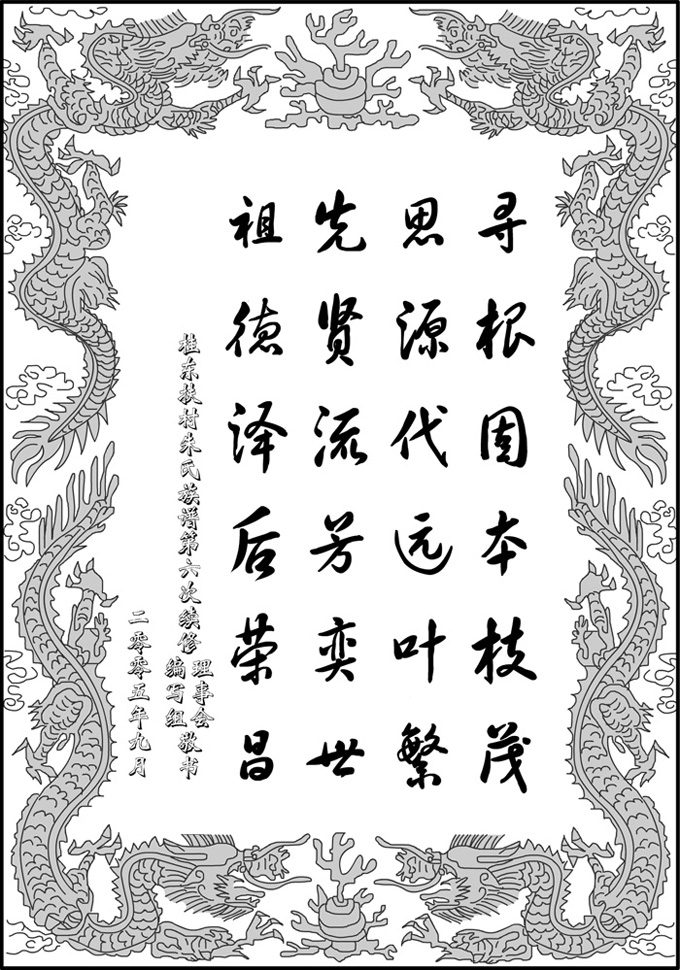 寻根固本枝茂
思源代远叶繁
先贤流芳奕世
祖德泽后荣昌
桂东扶村朱氏族谱第六次续修
理事会
编写组
敬书
二零零五年九月